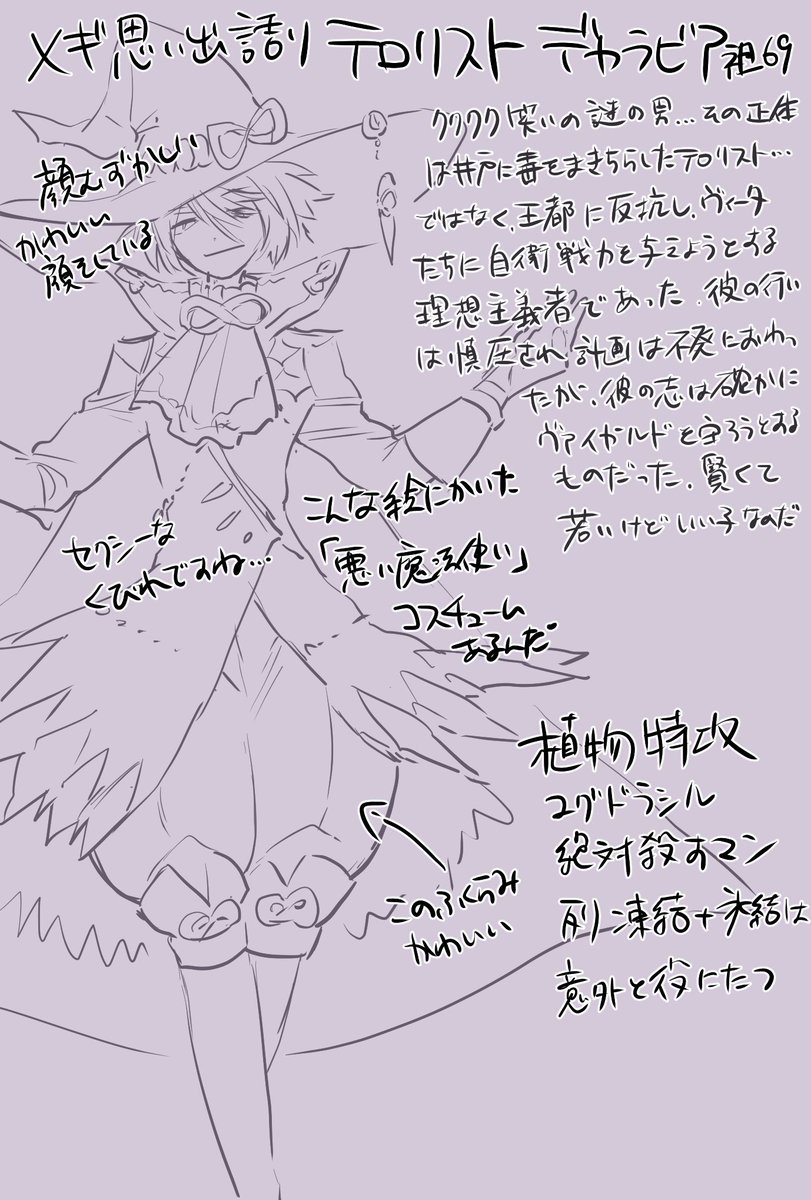 メギ思い出語り テロリスト デカラビア 祖69
顔むずかしい
かわいい
顔をしている
ククククク笑いの謎の男…その正体
は井戸に毒をまきちらしたテロリスト…
ではなく、王都に反抗し、ヴィータ
たちに自衛戦力を与えようとする
理想主義者であった。彼の行い
は慎圧され計画は不発におわっ
たが、彼の志は確かに
ヴァイガルドを守ろうとする
ものだった。賢くて
若いけどいい子なのだ
こんな絵にかいた
「悪い魔法使い」
コスチューム
あるんだ
セクシーな
くびれですね…
このふくらみ
かわいい
植物特攻
ユグドラシル
絶対殺すマン
列凍結+氷結は
意外と役にたつ